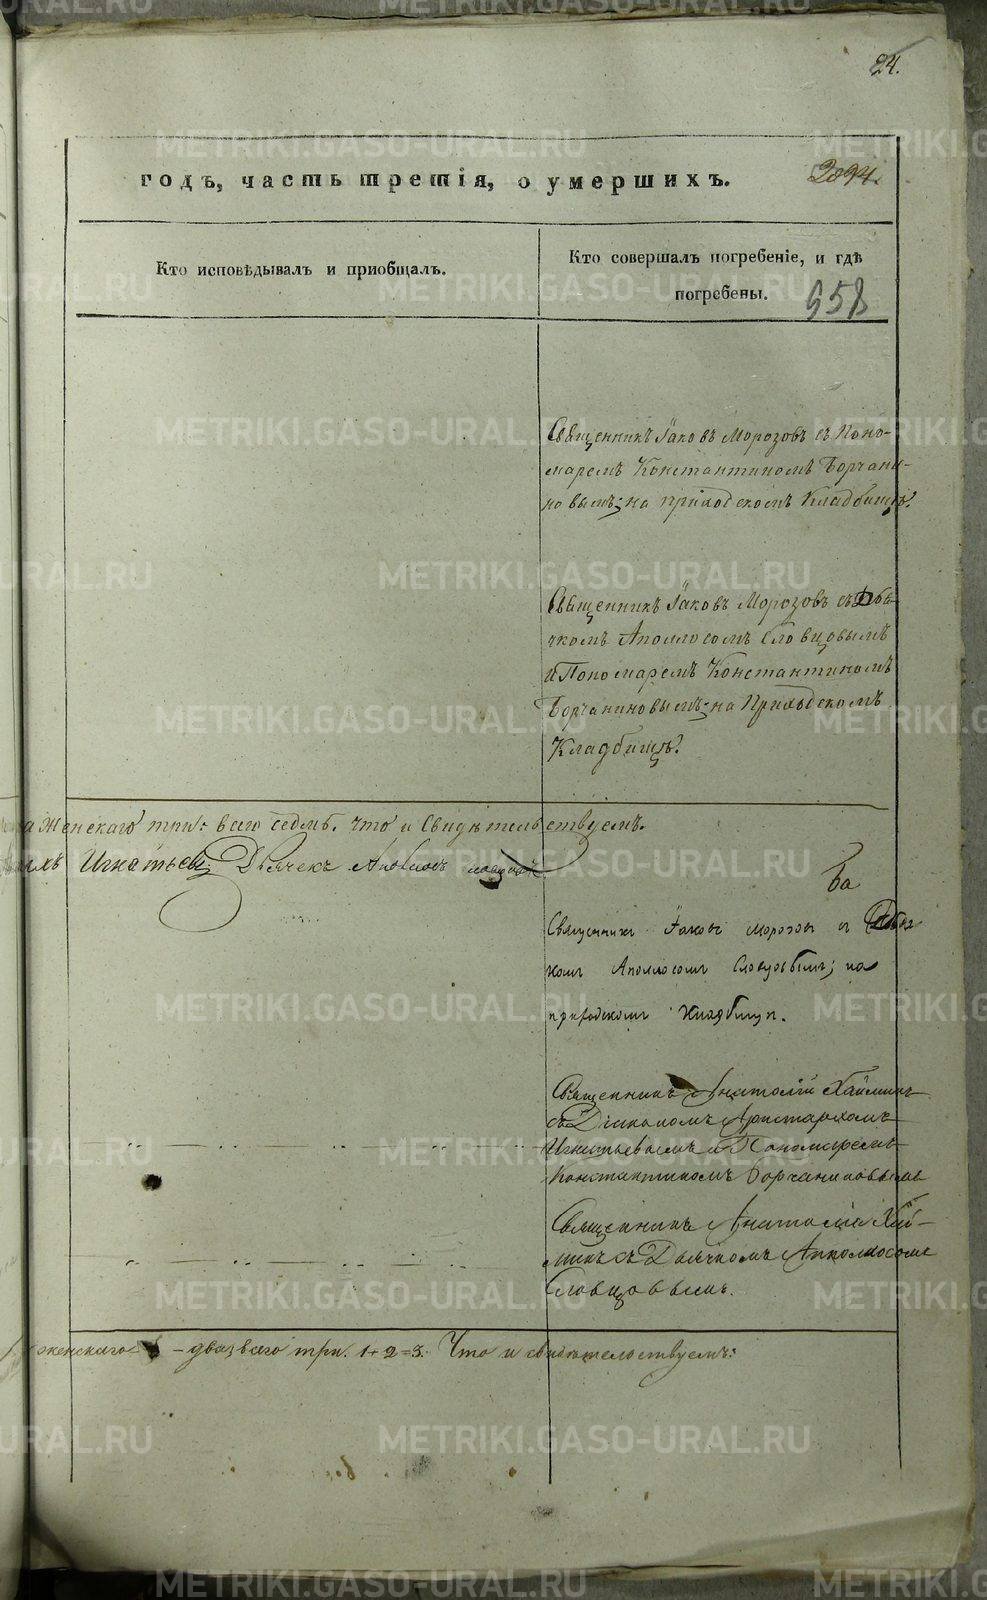 24.
годъ, часть третія, о умершихъ.
Кто исповѣдывалъ и пріобщалъ.
Кто совершалъ погребеніе, и гдѣ
погребены.
958
Священникъ Іаковъ Морозовъ съ Поно-
маремъ Константиномъ Борчани-
новымъ; на приходскомъ Кладбищѣ.
Священникъ Іаковъ Морозовъ съ Дья-
чкомъ Аполлосомъ Словцовымъ
и Пономаремъ Константиномъ
Борчаниновымъ; на Приходскомъ
Кладбищѣ.
а женскаго три: всего седмь. что и Свидѣтельствуемъ.
Игнатьевъ Дьячекъ Аполлосъ
Священникъ Іаковъ Морозовъ съ Дьяч
комъ Аполлосомъ Словцовымъ; на
приходскомъ Кладбищѣ.
Священникъ Анатолій Хайминъ
съ Діакономъ Аристархомъ
Игнатьевымъ и Пономаремъ
Константиномъ Борчаниновымъ
Священникъ Анатолій Хай-
минъ съ Дьячкомъ Апполлосомъ
Словцовымъ.
женскаго – два; всего три. 1+2=3. Что и свидѣтельствуемъ:
METRIKI.GASO-URAL.RU